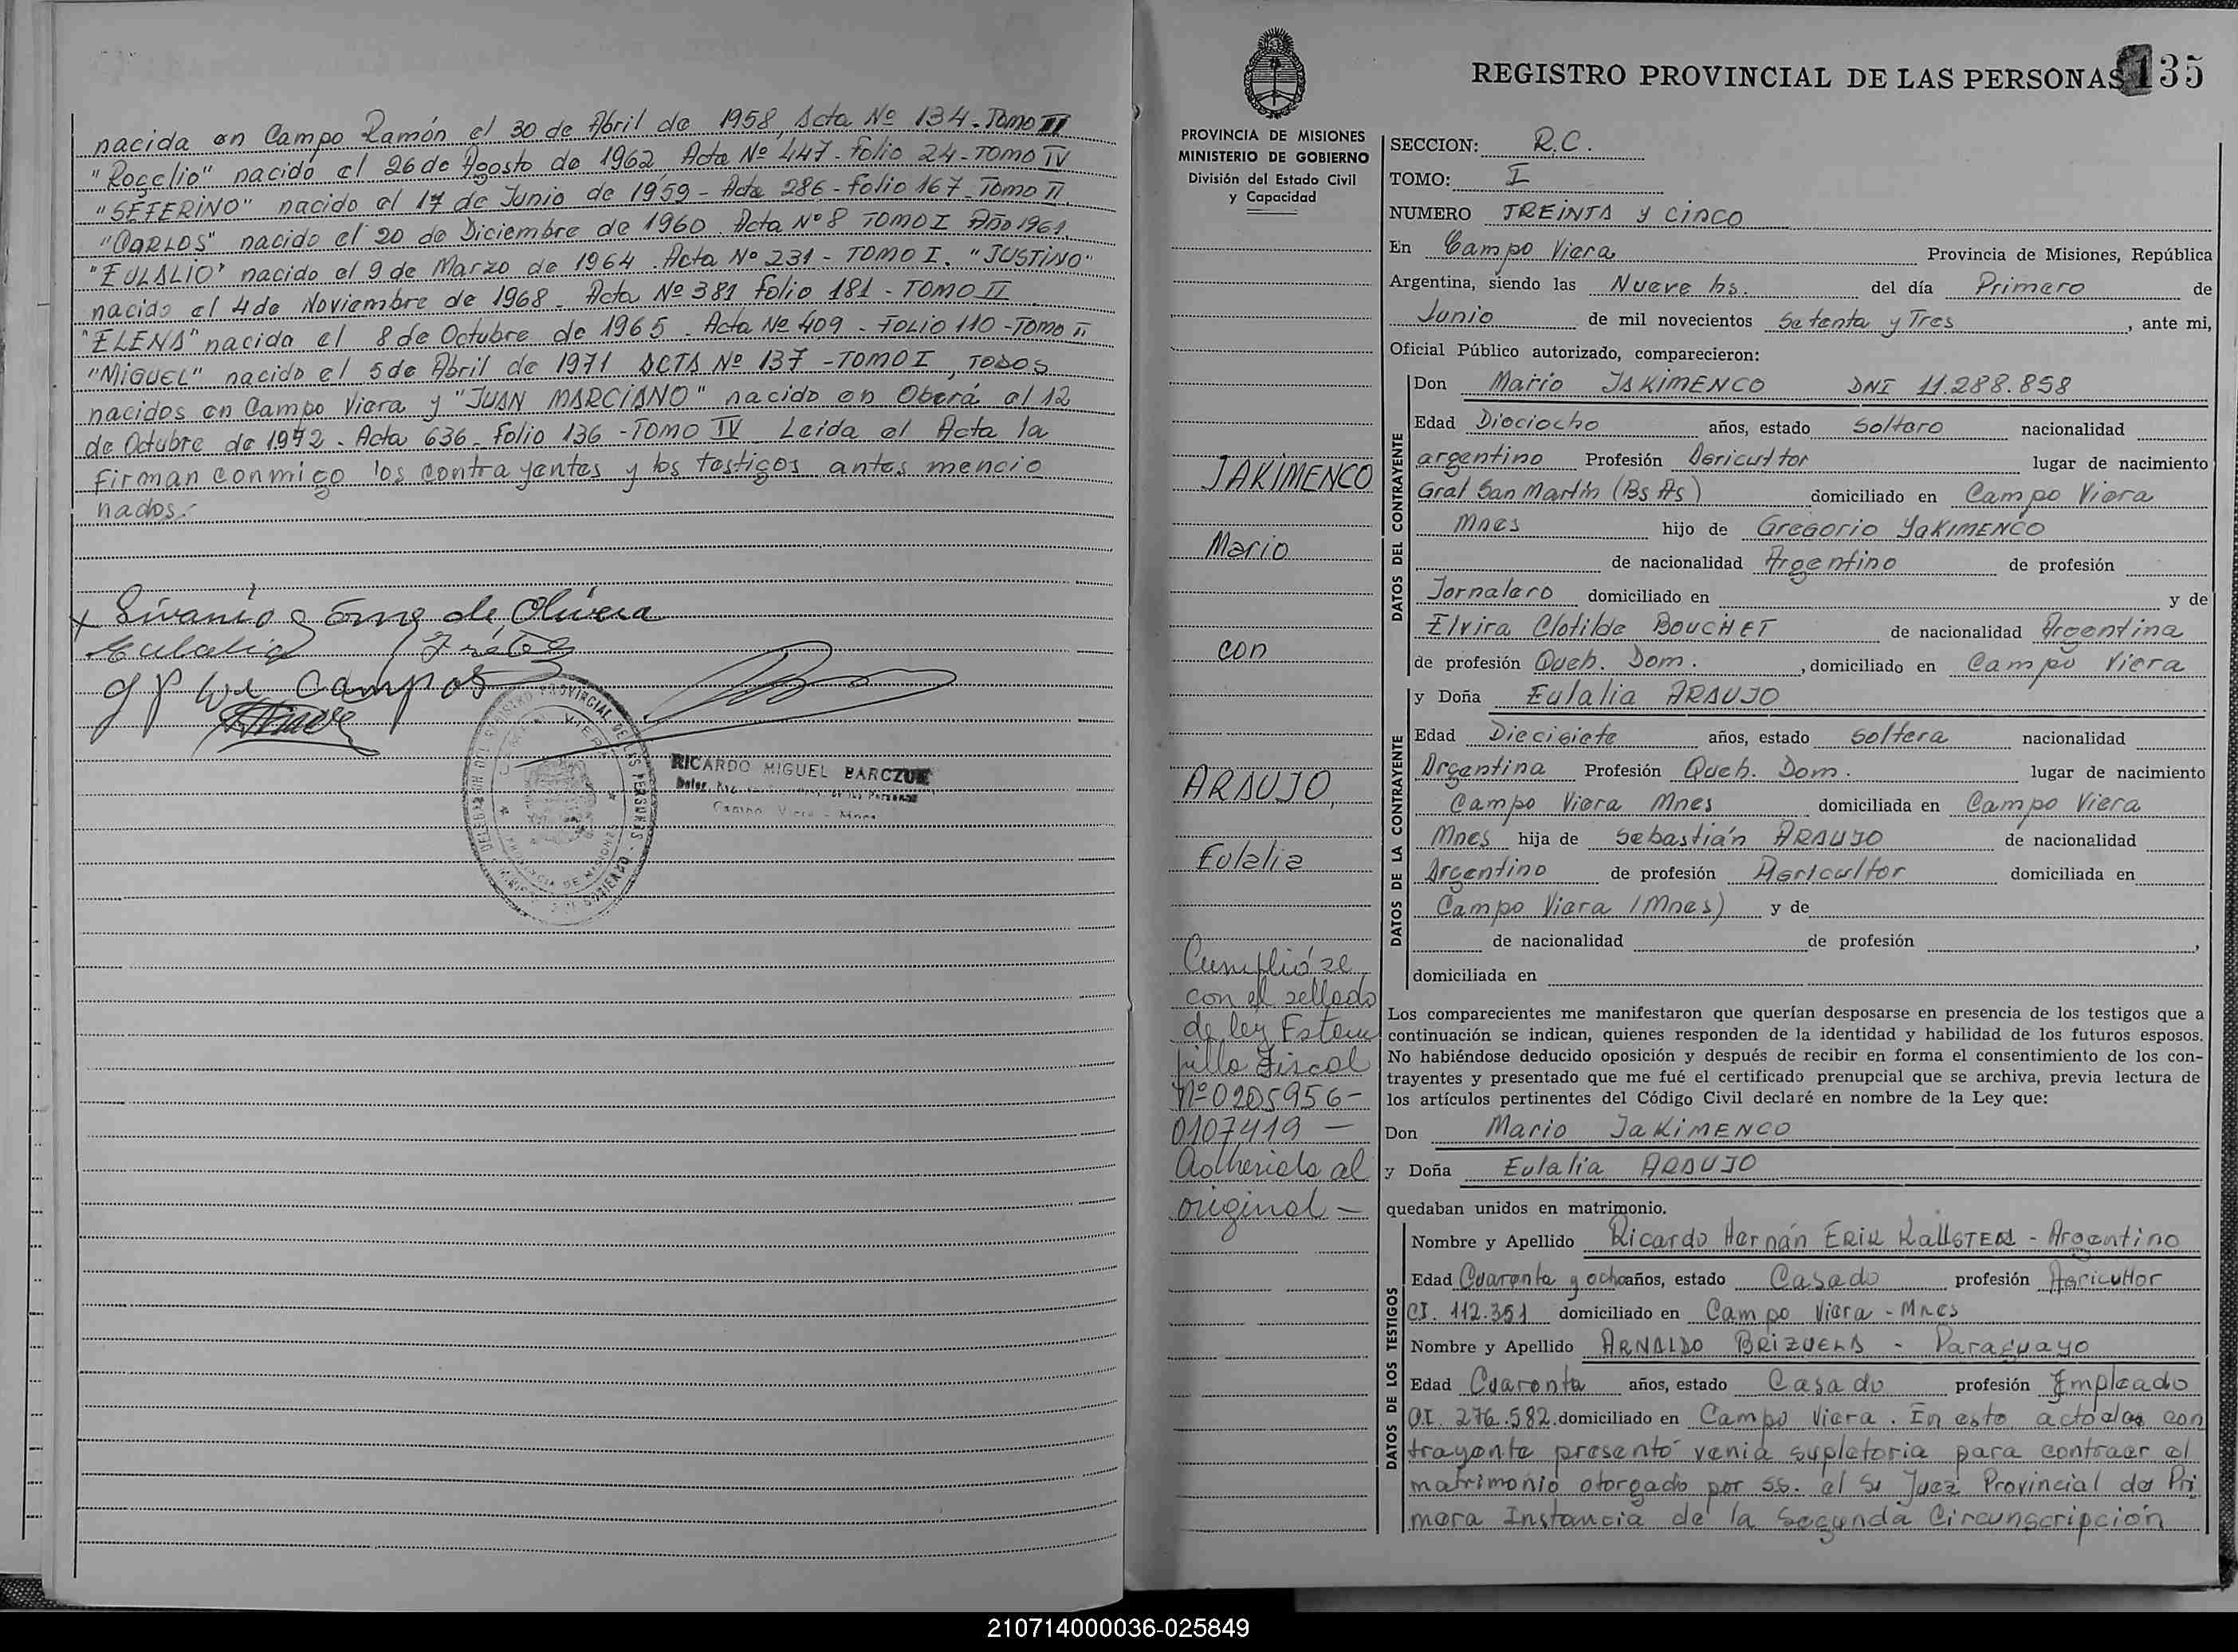 nacida en Campo Ramón el 30 de Abril de 1958, Acta Nº 134 - Tomo II
"Rogelio" nacido el 26 de Agosto de 1962 Acta Nº 447 - Folio 24 - TOMO IV
"SEFERINO" nacido el 17 de Junio de 1959 - Acta 286 - Folio 167 - Tomo II.
"CARLOS" nacido el 20 de Diciembre de 1960. Acta Nº 8 TOMO I Año 1961.
"EULALIO" nacido el 9 de Marzo de 1964. Acta Nº 231 - TOMO I. "JUSTINO"
nacido el 4 de Noviembre de 1968 - Acta Nº 381 Folio 181 - TOMO II
"ELENA" nacida el 8 de Octubre de 1965. Acta Nº 409 - FOLIO 110 - TOMO II
"MIGUEL" nacido el 5 de Abril de 1971 ACTA Nº 137 - TOMO I, TODOS
nacidos en Campo Viera y "JUAN MARCIANO" nacido en Oberá el 12
de Octubre de 1972 - Acta 636 - Folio 136 - TOMO IV Leida el Acta la
Firman conmigo los contrayentes y los testigos antes mencio
nados.-
RICARDO MIGUEL BARCZUK
Campo Viera - Mnes
REGISTRO PROVINCIAL DE LAS PERSONAS 135
PROVINCIA DE MISIONES
MINISTERIO DE GOBIERNO
División del Estado Civil
y Capacidad
JAKIMENCO
Mario
con
ARAUJO,
Eulalia
Cumplióse
con el sellado
de ley Estam
pilla Fiscal
Nº 0205956-
0107419 -
Adherida al
original -
SECCION: R.C.
TOMO: I
NUMERO TREINTA y cinco
En Campo Viera Provincia de Misiones, República
Argentina, siendo las Nueve hs. del día Primero de
Junio de mil novecientos Setenta y Tres, ante mi,
Oficial Público autorizado, comparecieron:
DATOS DEL CONTRAYENTE
Don Mario JAKIMENCO DNI 11.288.858
Edad Dieciocho años, estado Soltero nacionalidad
argentino Profesión Agricultor lugar de nacimiento
Gral San Martín (Bs As) domiciliado en Campo Viera
Mnes hijo de Gregorio YaKIMENCO
de nacionalidad Argentino de profesión
Jornalero domiciliado en y de
Elvira Clotilde BOUCHET de nacionalidad Argentina
de profesión Queh. Dom., domiciliado en Campo Viera
DATOS DE LA CONTRAYENTE
y Doña Eulalia ARAUJO
Edad Diecisiete años, estado soltera nacionalidad
Argentina Profesión Queh. Dom. lugar de nacimiento
Campo Viera Mnes domiciliada en Campo Viera
Mnes hija de Sebastián ARAUJO de nacionalidad
Argentino de profesión Agricultor domiciliada en
Campo Viera (Mnes) y de
de nacionalidad de profesión ,
domiciliada en
Los comparecientes me manifestaron que querían desposarse en presencia de los testigos que a
continuación se indican, quienes responden de la identidad y habilidad de los futuros esposos.
No habiéndose deducido oposición y después de recibir en forma el consentimiento de los con-
trayentes y presentado que me fué el certificado prenupcial que se archiva, previa lectura de
los artículos pertinentes del Código Civil declaré en nombre de la Ley que:
Don Mario JaKiMENCO
y Doña Eulalia ARAUJO
quedaban unidos en matrimonio.
DATOS DE LOS TESTIGOS
Nombre y Apellido Ricardo Hernán ERIK KallSTEN - Argentino
Edad Cuarenta y ocho años, estado Casado profesión Agricultor
CI. 112.351 domiciliado en Campo Viera - Mnes
Nombre y Apellido ARNALDO BRIZUELA - Paraguayo
Edad Cuarenta años, estado Casado profesión Empleado
CI. 276.582 domiciliado en Campo Viera. En este acto con
trayente presentó venia supletoria para contraer el
matrimonio otorgado por SS. el Sr Juez Provincial de Pri
mera Instancia de la Segunda Circunscripción
210714000036-025849